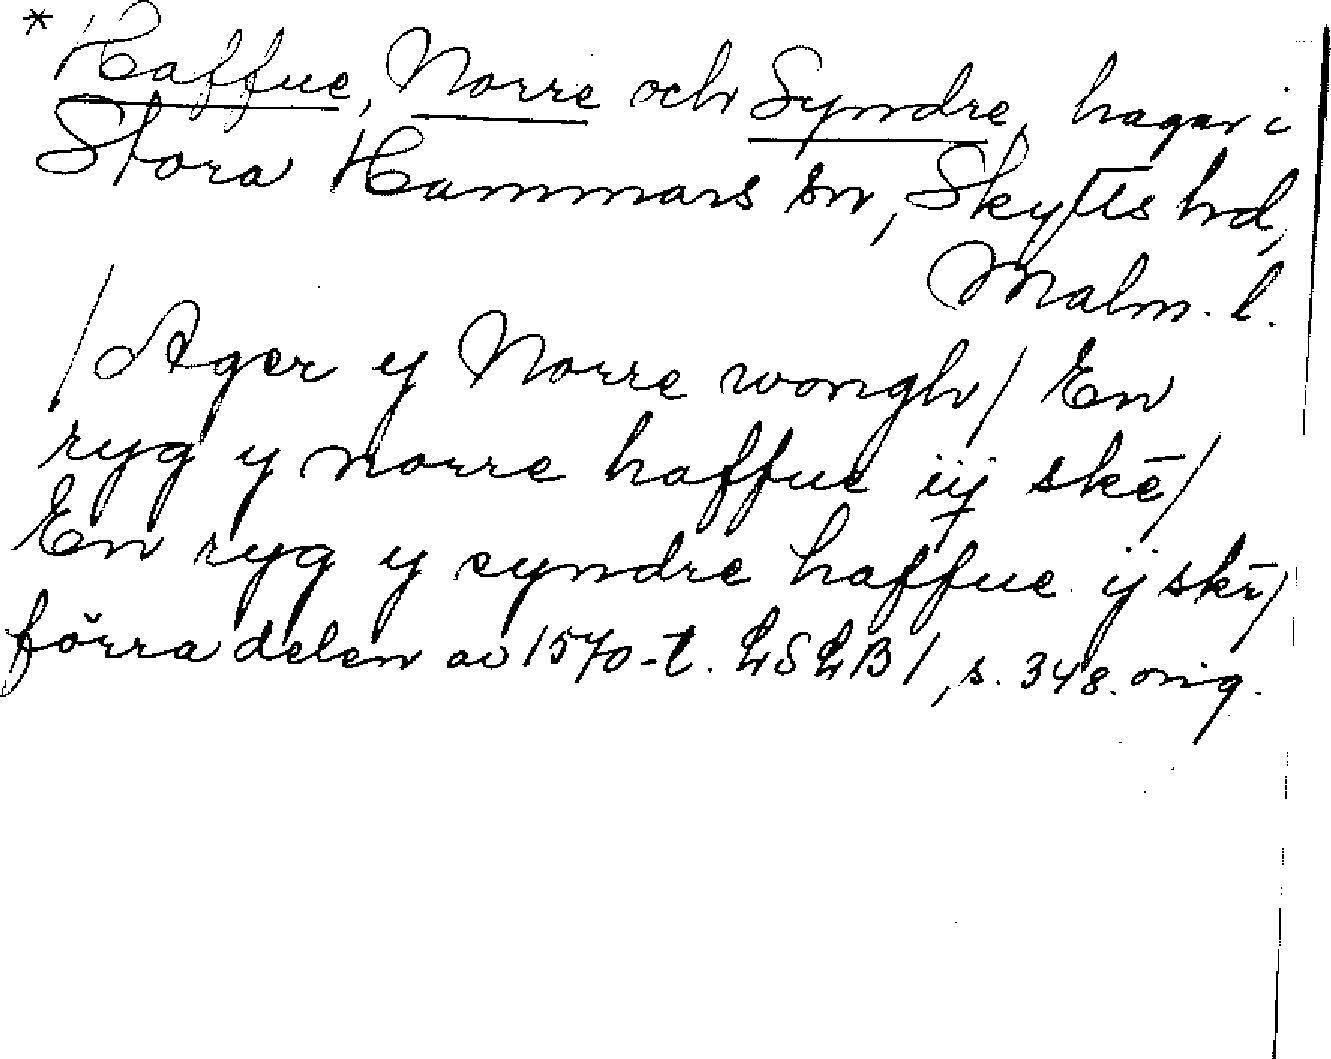 * Haffue, Norre och Syndre, hagar i
Stora Hammars sn, Skytts hd,
Malm. l.
/ Ager y Norre wongh / En
ryg y norre haffue iij skē /
En ryg y syndre haffue ij skē /
förra delen av 1570-t. LSLB 1, s. 348. orig.